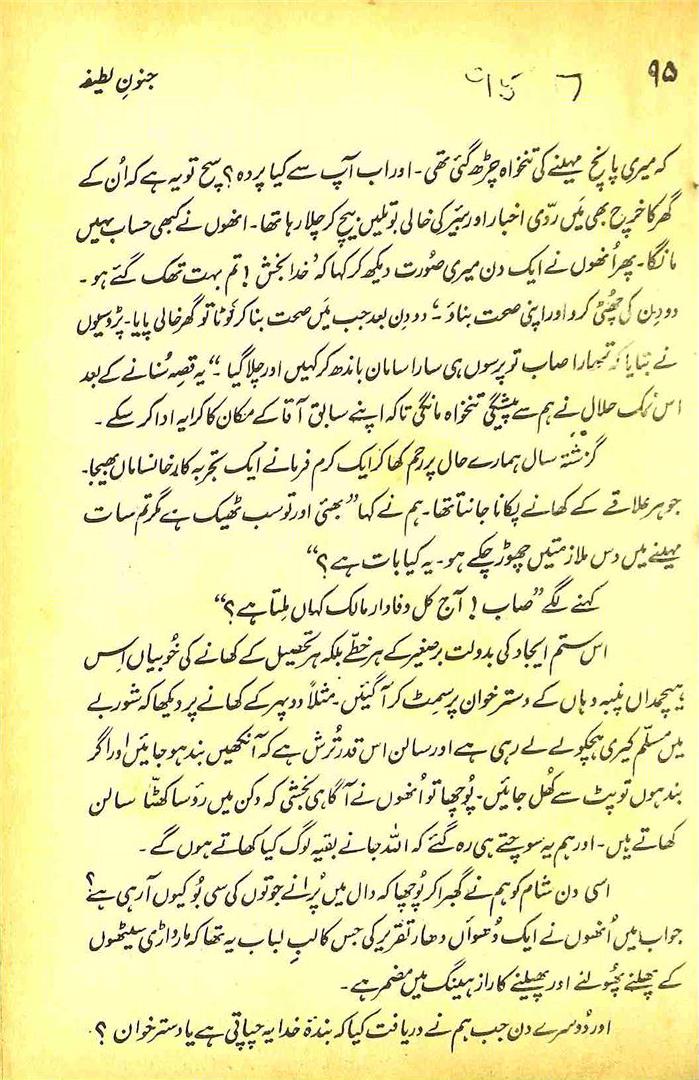 ۹۵
جنونِ لطیفہ
کہ میری پانچ مہینے کی تنخواہ چڑھ گئی تھی۔ اور اب آپ سے کیا پردہ؟ سچ تو یہ ہے کہ اُن کے
گھر کا خرچ بھی مَیں ردّی اخبار اور بیئر کی خالی بوتلیں بیچ کر چلا رہا تھا۔ انھوں نے کبھی حساب نہیں
مانگا۔ پھر اُنھوں نے ایک دن میری صُورت دیکھ کر کہا کہ ’خدا بخش! تم بہت تھک گئے ہو۔
دو دِن کی چھُٹی کرو اور اپنی صحت بناؤ۔‘ دو دِن بعد جب مَیں صحت بنا کر لَوٹا تو گھر خالی پایا۔ پڑوسیوں
نے بتایا کہ تمہارا صاب تو پرسوں ہی سارا سامان باندھ کر کہیں اور چلا گیا۔“ یہ قصہ سُنانے کے بعد
اس نمک حلال نے ہم سے پیشگی تنخواہ مانگی تاکہ اپنے سابق آقا کے مکان کا کرایہ ادا کر سکے۔
گزشتہ سال ہمارے حال پر رحم کھا کر ایک کرم فرما نے ایک تجربہ کار خانساماں بھیجا۔
جو ہر علاقے کے کھانے پکانا جانتا تھا۔ ہم نے کہا ”بھئی اور تو سب ٹھیک ہے مگر تم سات
مہینے میں دس ملازمتیں چھوڑ چکے ہو۔ یہ کیا بات ہے؟“
کہنے لگے ”صاب! آج کل وفادار مالک کہاں مِلتا ہے؟“
اس ستم ایجاد کی بدولت برصغیر کے ہر خطّے بلکہ ہر تحصیل کے کھانے کی خُوبیاں اِس
ہیچمداں پنبہ دہاں کے دسترخوان پر سِمٹ کر آ گئیں۔ مثلاً دوپہر کے کھانے پر دیکھا کہ شوربے
میں مسلّم کیری ہچکولے لے رہی ہے اور سالن اس قدر تُرش ہے کہ آنکھیں بند ہو جائیں اور اگر
بند ہوں تو پٹ سے کھُل جائیں۔ پُوچھا تو اُنھوں نے آگاہی بخشی کہ دکن میں رؤسا کھٹّا سالن
کھاتے ہیں۔ اور ہم یہ سوچتے ہی رہ گئے کہ اللہ جانے بقیہ لوگ کیا کھاتے ہوں گے۔
اسی دن شام کو ہم نے گھبرا کر پُوچھا کہ دال میں پُرانے جوتوں کی سی بُو کیوں آ رہی ہے؟
جواب میں اُنھوں نے ایک دُھواں دھار تقریر کی جس کا لبِ لباب یہ تھا کہ مارواڑی سیٹھوں
کے پھلنے پھُولنے اور پھیلنے کا راز ہینگ میں مضمر ہے۔
اور دُوسرے دن جب ہم نے دریافت کیا کہ بندۂ خدا یہ چپاتی ہے یا دسترخوان؟